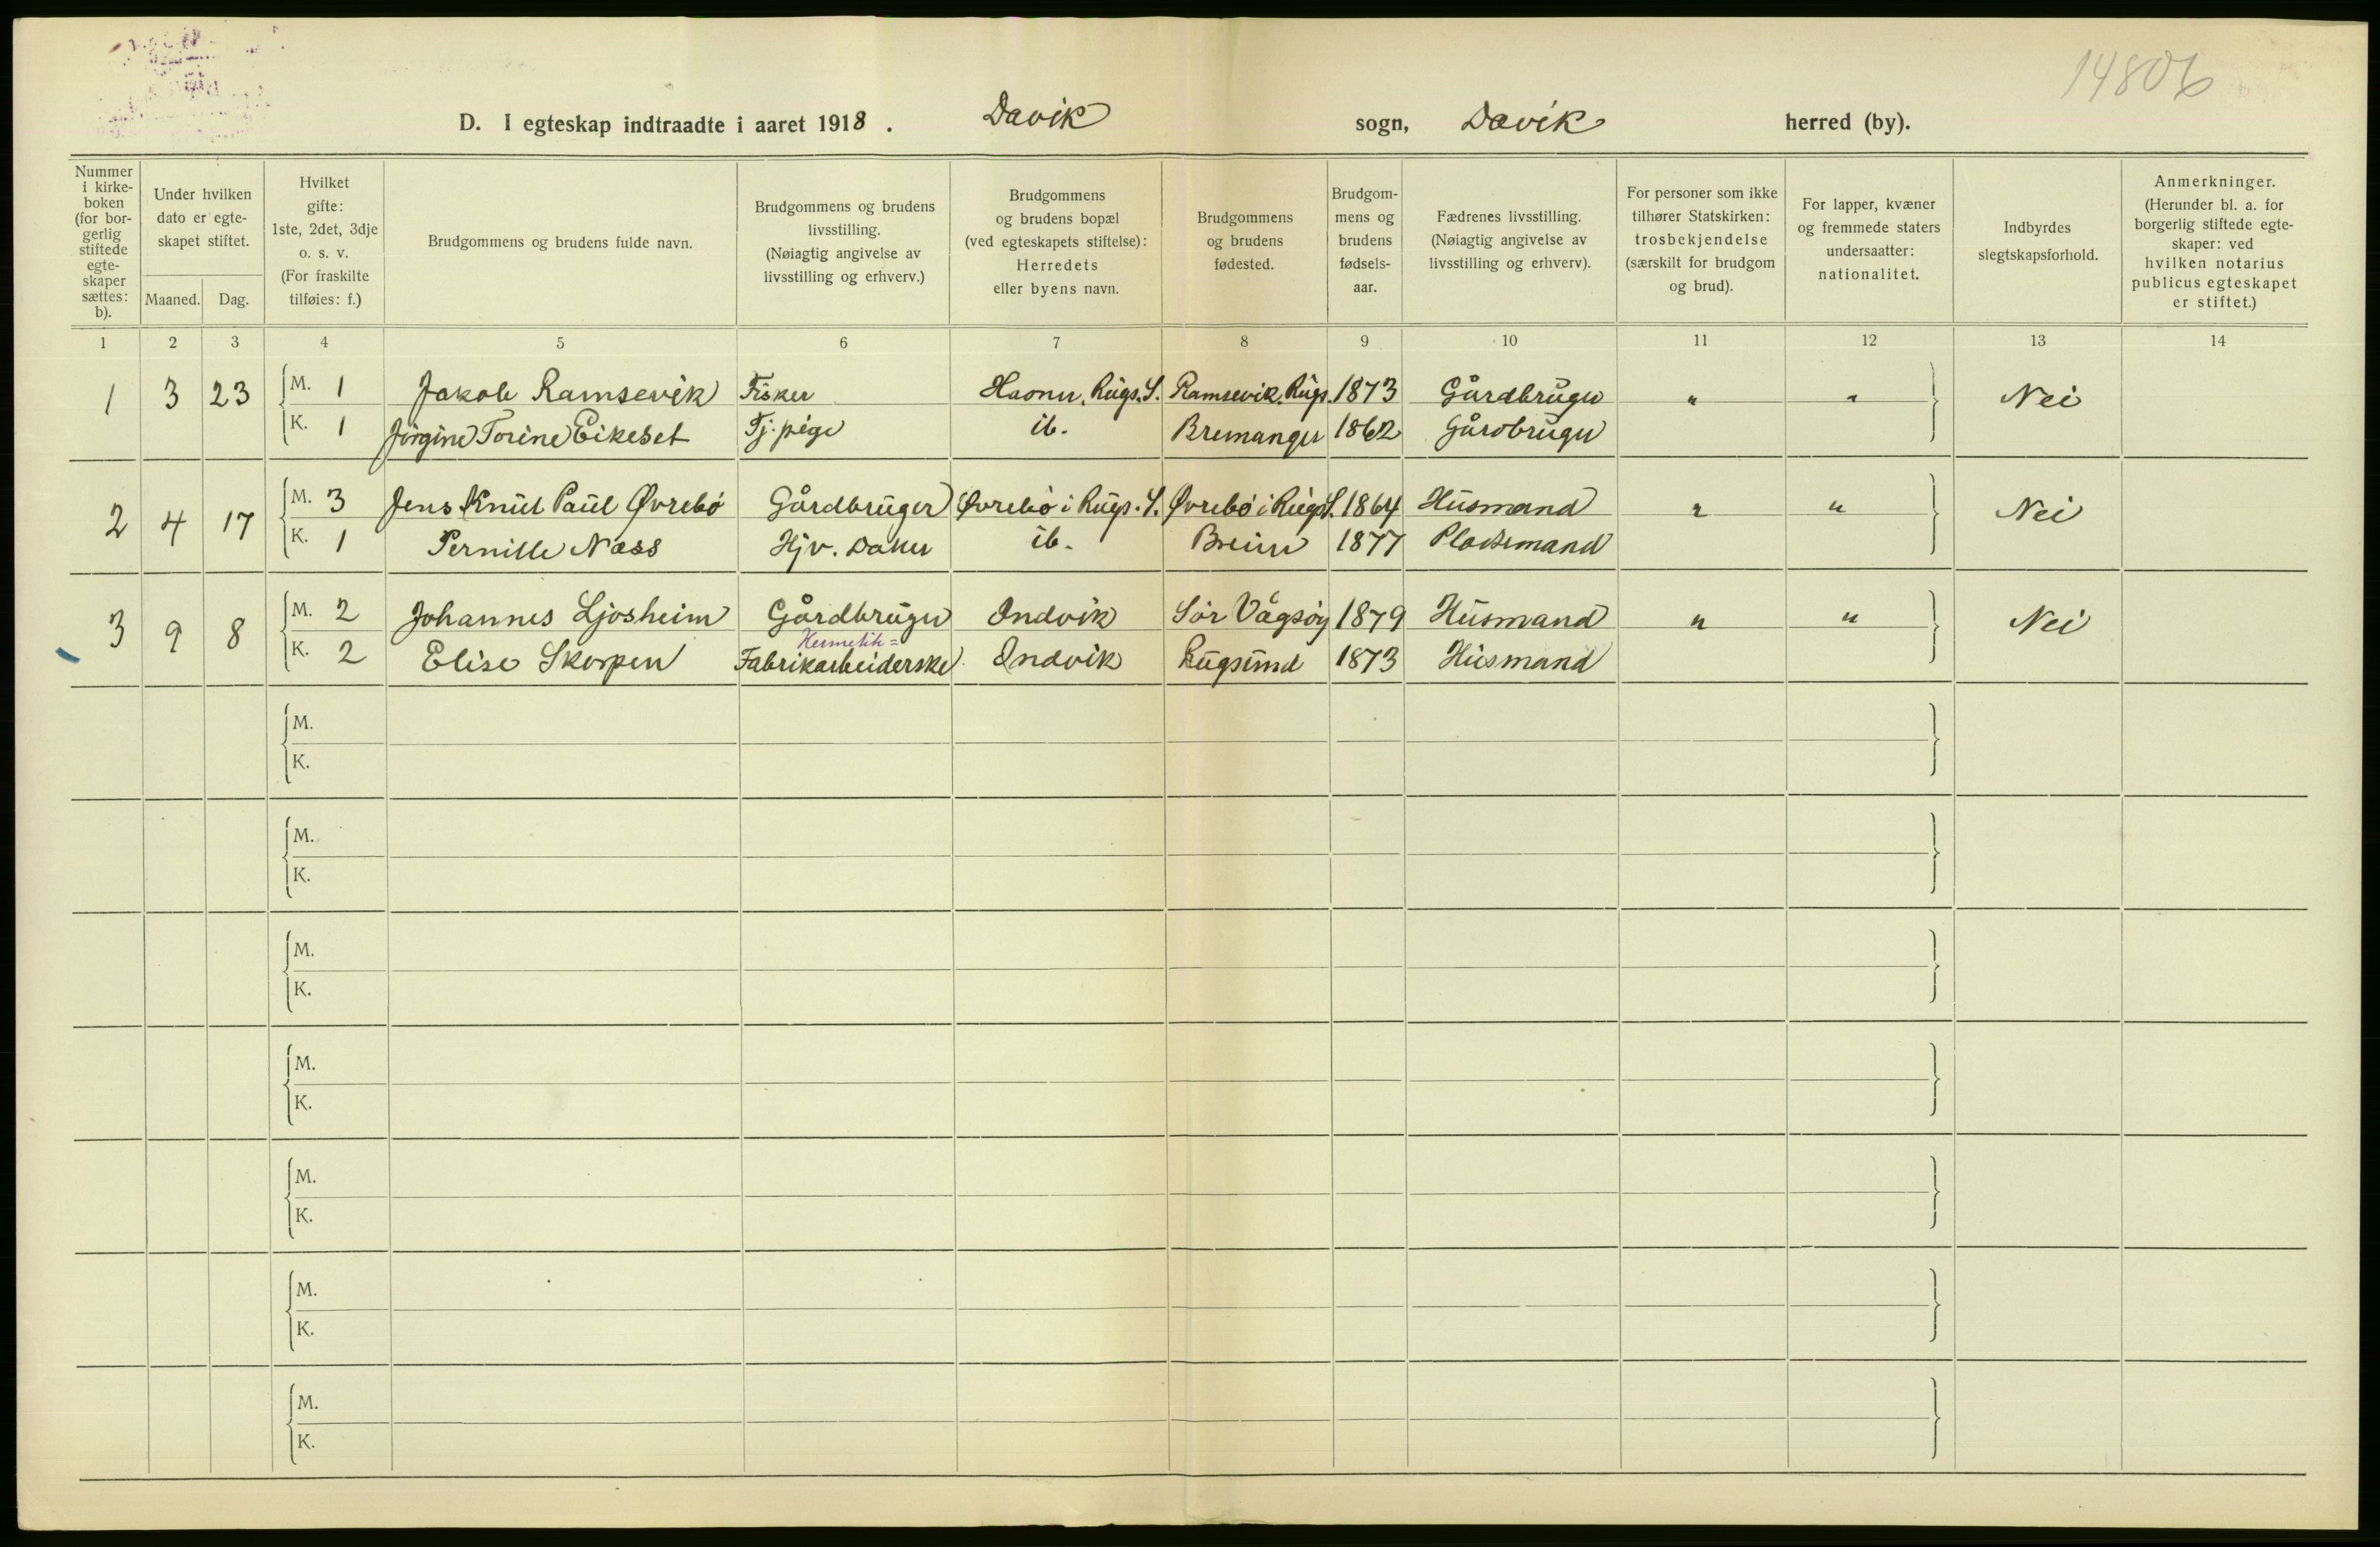 14806
D. I egteskap indtraadte i aaret 1918. Davik sogn, Davik herred (by).
Nummer i kirkeboken (for borgerlig stiftede egteskaper sættes: b).
Under hvilken dato er egteskapet stiftet.
Maaned. Dag.
Hvilket gifte: 1ste, 2det, 3dje o. s. v. (For fraskilte tilføies: f.)
Brudgommens og brudens fulde navn.
Brudgommens og brudens livsstilling. (Nøiagtig angivelse av livsstilling og erhverv.)
Brudgommens og brudens bopæl (ved egteskapets stiftelse): Herredets eller byens navn.
Brudgommens og brudens fødested.
Brudgommens og brudens fødselsaar.
Fædrenes livsstilling. (Nøiagtig angivelse av livsstilling og erhverv).
For personer som ikke tilhører Statskirken: trosbekjendelse (særskilt for brudgom og brud).
For lapper, kvæner og fremmede staters undersaatter: nationalitet.
Indbyrdes slegtskapsforhold.
Anmerkninger. (Herunder bl. a. for borgerlig stiftede egteskaper: ved hvilken notarius publicus egteskapet er stiftet.)
1 2 3 4 5 6 7 8 9 10 11 12 13 14
1 3 23 M. 1 Jakob Ramsevik Fisker Rugs. S. Ramsevik, Rugs. 1873 Gårdbruger " " Nei
K. 1 Jörgine Torine Eikeset Tj. pige ib. Bremanger 1862 Gårdbruger
2 4 17 M. 3 Jens Knut Paul Øvrebö Gårdbruger Øvrebö i Rugs. S. Øvrebö i Rugs. S. 1864 Husmand " " Nei
K. 1 Pernille Næss Hjv. Daner ib. Breim 1877 Pladsmand
3 9 8 M. 2 Johannes Ljosheim Gårdbruger Indvik Sör Vågsöy 1879 Husmand " " Nei
Hermetik=
K. 2 Elise Skorpen Fabrikarbeiderske Indvik Rugsund 1873 Husmand
M.
K.
M.
K.
M.
K.
M.
K.
M.
K.
M.
K.
M.
K.